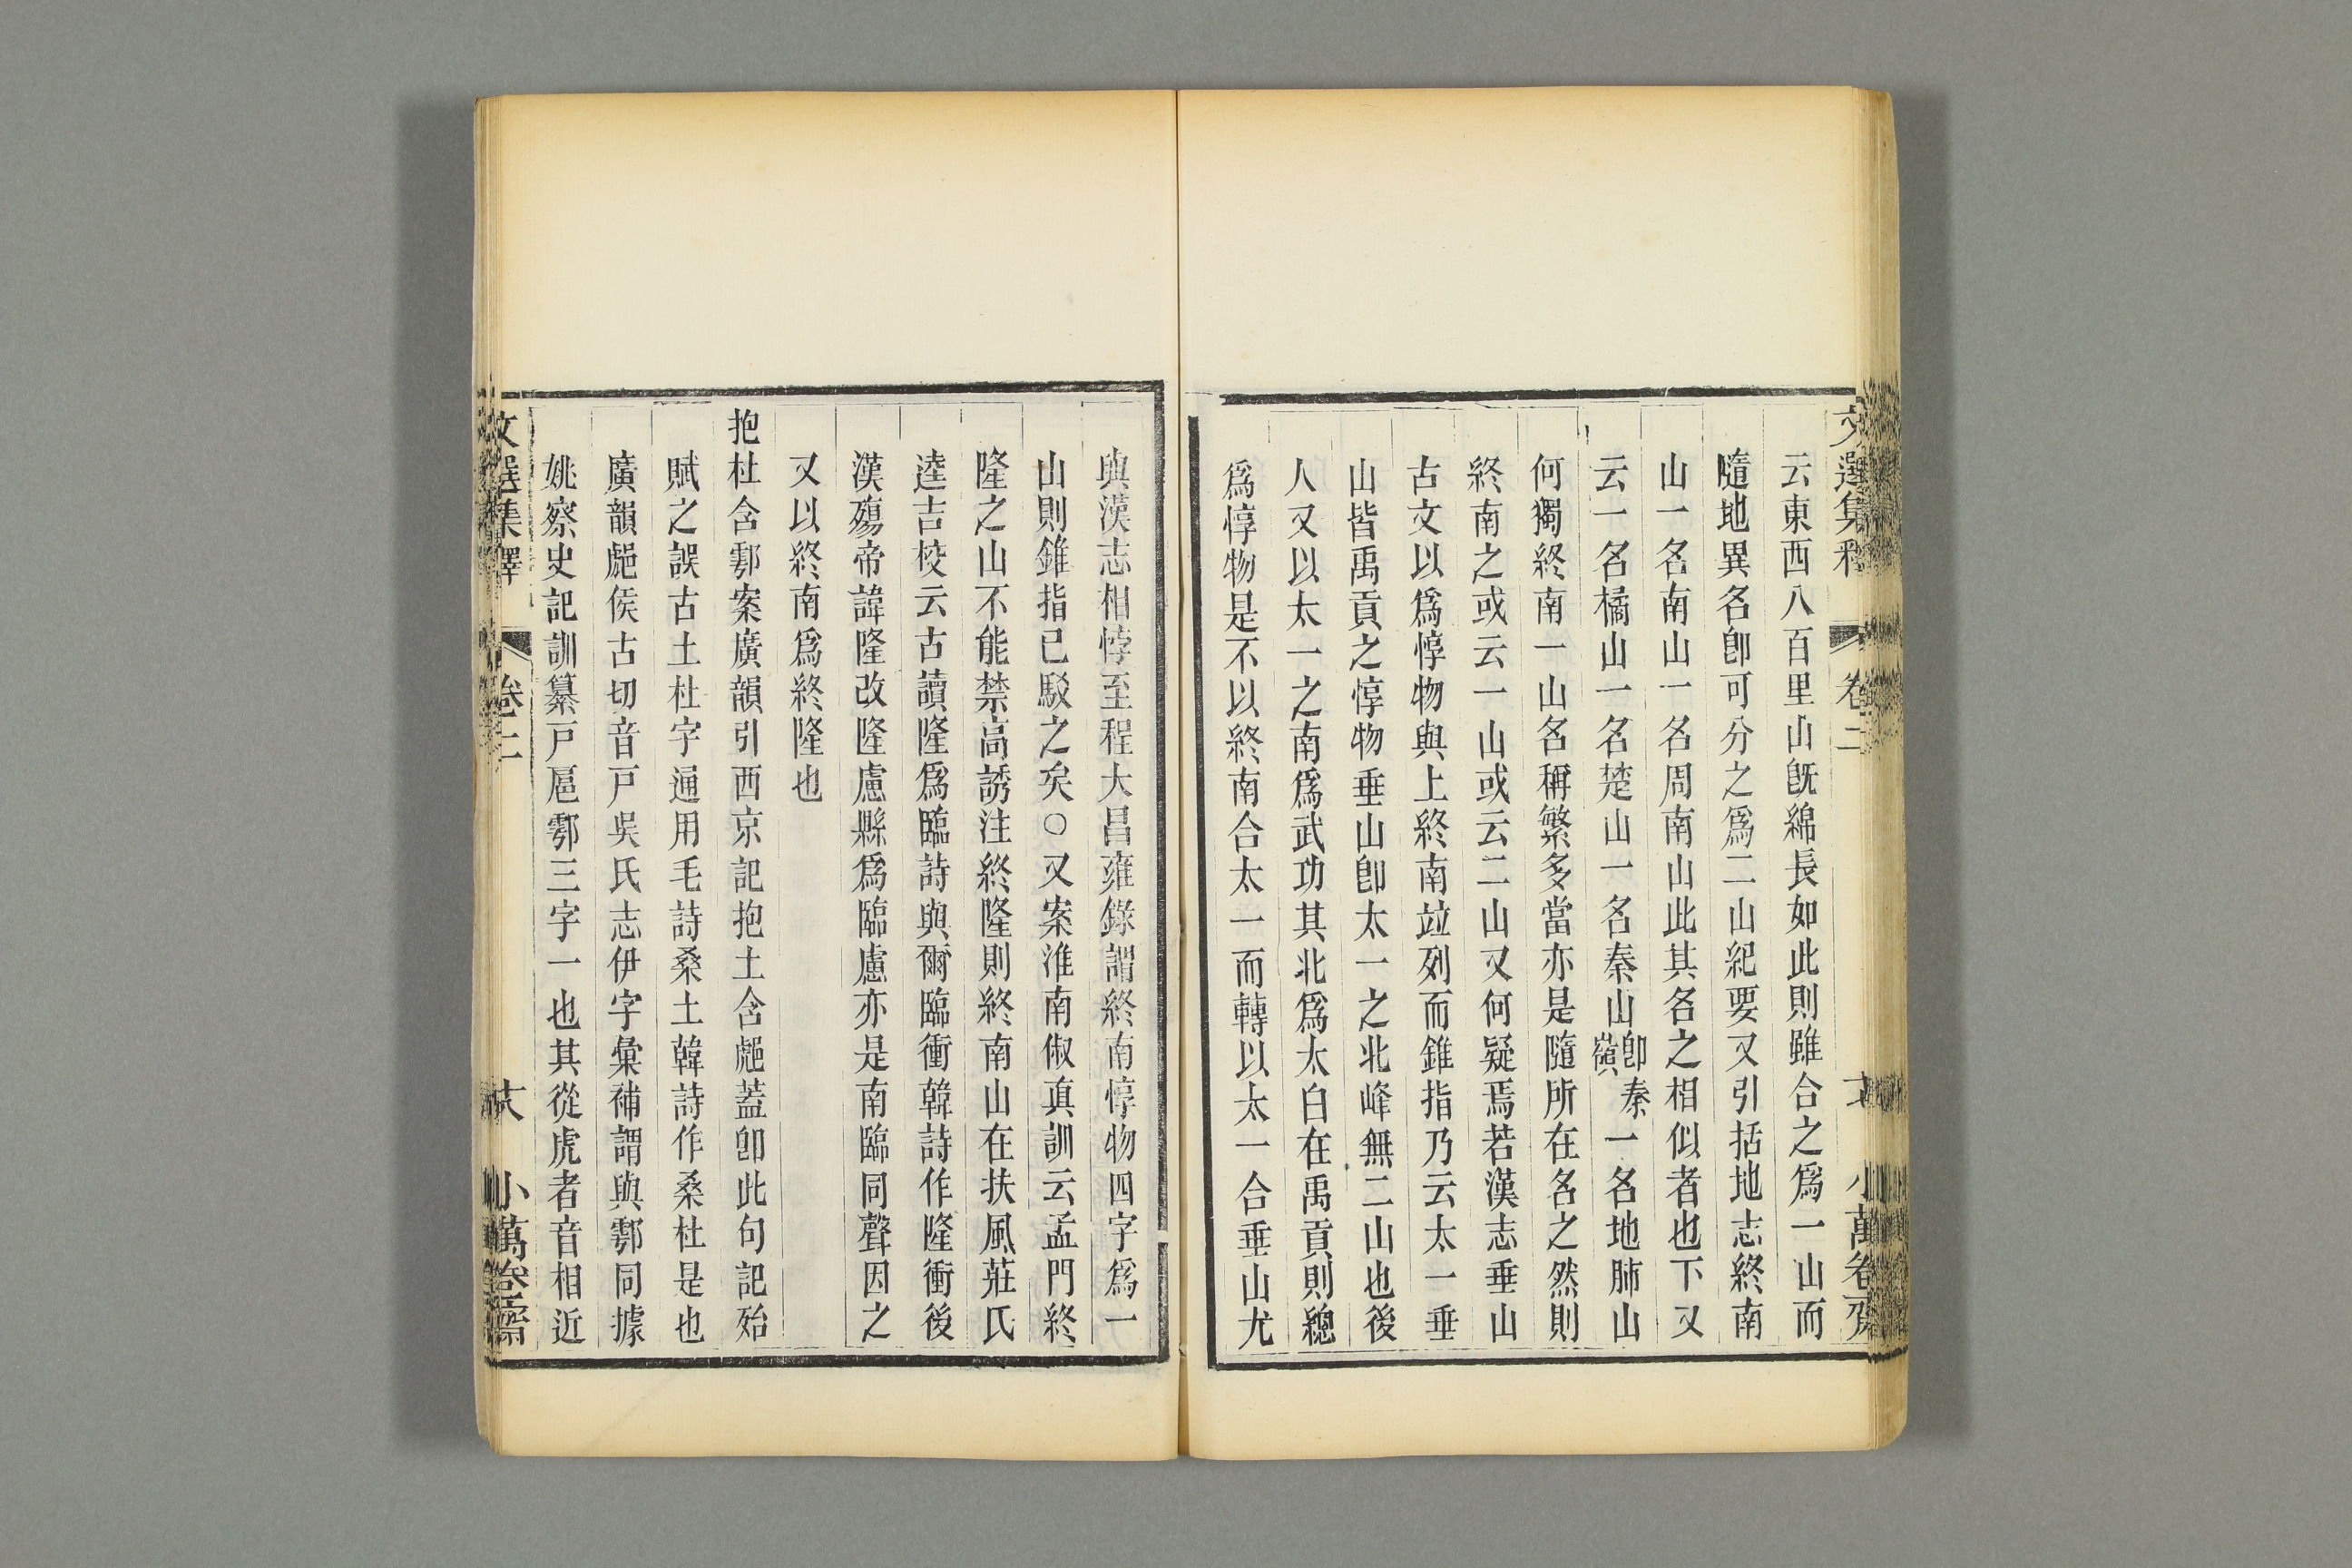 文選集釋 卷二 小萬卷齋
云東西八百里山旣綿長如此則雖合之爲一山而
隨地異名卽可分之爲二山紀要又引括地志終南
山一名南山一名周南山此其名之相似者也下又
云一名橘山一名楚山一名秦山卽秦嶺一名地肺山
何獨終南一山名稱繁多當亦是隨所在名之然則
終南之或云一山或云二山又何疑焉若漢志垂山
古文以爲惇物與上終南竝列而錐指乃云太一垂
山皆禹貢之惇物垂山卽太一之北峰無二山也後
人又以太一之南爲武功其北爲太白在禹貢則總
爲惇物是不以終南合太一而轉以太一合垂山尤
與漢志相悖至程大昌雍錄謂終南惇物四字爲一
山則錐指已駁之矣○又案淮南俶眞訓云孟門終
隆之山不能禁高誘注終隆則終南山在扶風莊氏
逵吉校云古讀隆爲臨詩與爾臨衝韓詩作隆衝後
漢殤帝諱隆改隆慮縣爲臨慮亦是南臨同聲因之
又以終南爲終隆也
抱杜含鄠案廣韻引西京記抱土含𨞐蓋卽此句記殆
賦之誤古土杜字通用毛詩桑土韓詩作桑杜是也
廣韻𨞐侯古切音戸吳氏志伊字彙補謂與鄠同據
姚察史記訓纂戸扈鄠三字一也其從虎者音相近
文選集釋 卷二 六 小萬卷齋